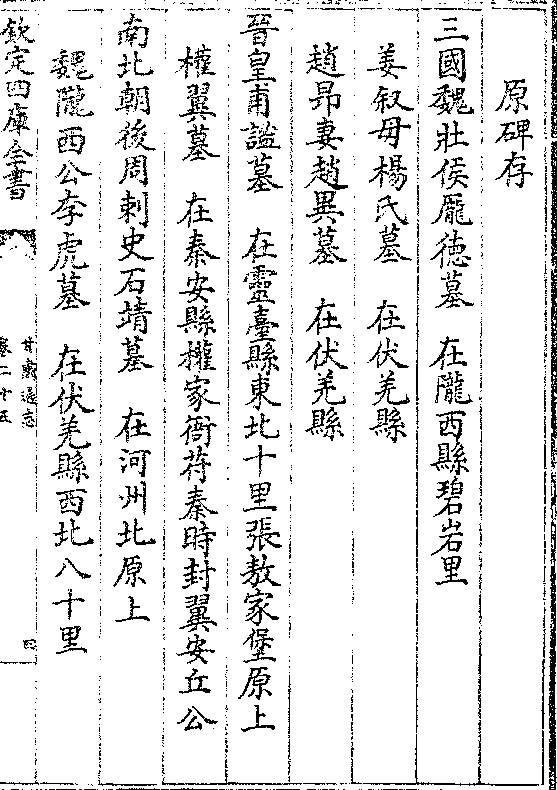 原碑存
三國魏壯侯龎徳墓 在隴西縣碧岩里
姜叙母楊氏墓 在伏羌縣
趙昂妻趙異墓 在伏羌縣
晉皇甫謐墓 在靈臺縣東北十里張敖家堡原上
權翼墓 在秦安縣權家衙苻秦時封翼安丘公
南北朝後周刺史石靖墓 在河州北原上
魏隴西公李虎墓 在伏羌縣西北八十里
欽定四庫全書
甘肅通志
卷二十五
四